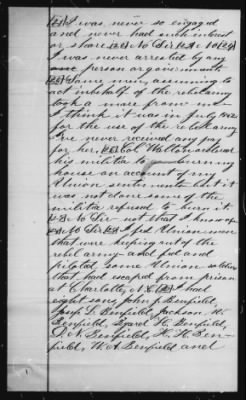 I was never so engaged
and never had such interest
or share No Sir No Sir
I was never arrested by any
person or
Same men, assuming to
act in behalf of the rebel army
took a mare from me
I think it was in July 1862
for the use of the rebel army
never received any pay
for her, Col Walton
his militia to burn my
house on account of my
Union sentiments but it
was not done some of the
militia refused to burn it
No Sir - not that I know of
No Sir I fed Union men
that were keeping out of the
rebel army and fed and
piloted some Union soldiers
that had escaped from prison
at Charlotte, N.C. I had
eight sons, John J. Benfield,
Benfield, Jackson W.
Benfield, H. Benfield,
Benfield, H. H. Ben-
field, W. A. Benfield and